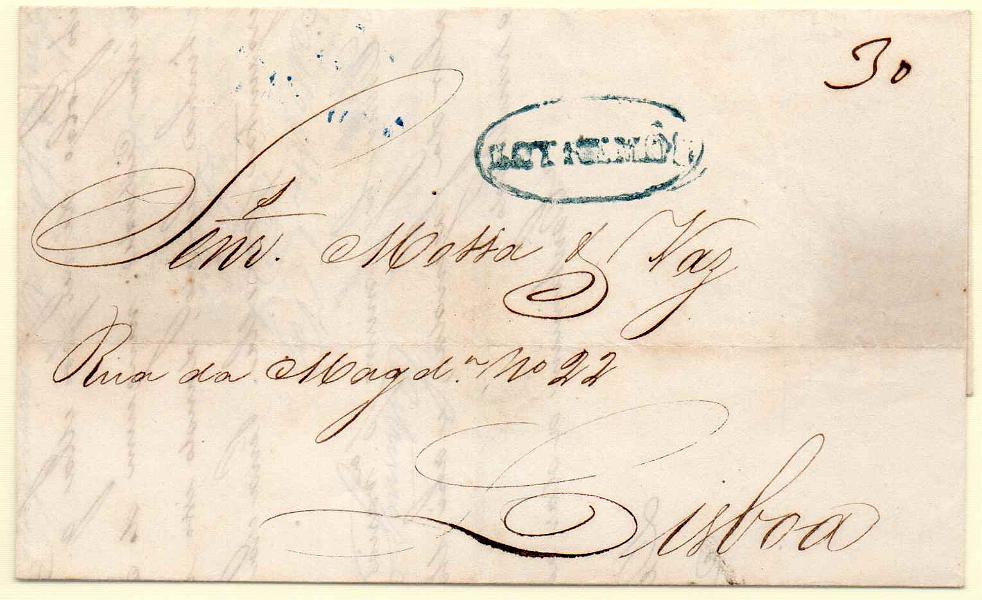 30
Senr.ˢ Mossa & Vaz
Rua da Magd.ⁿᵃ Nº 22
Lisboa